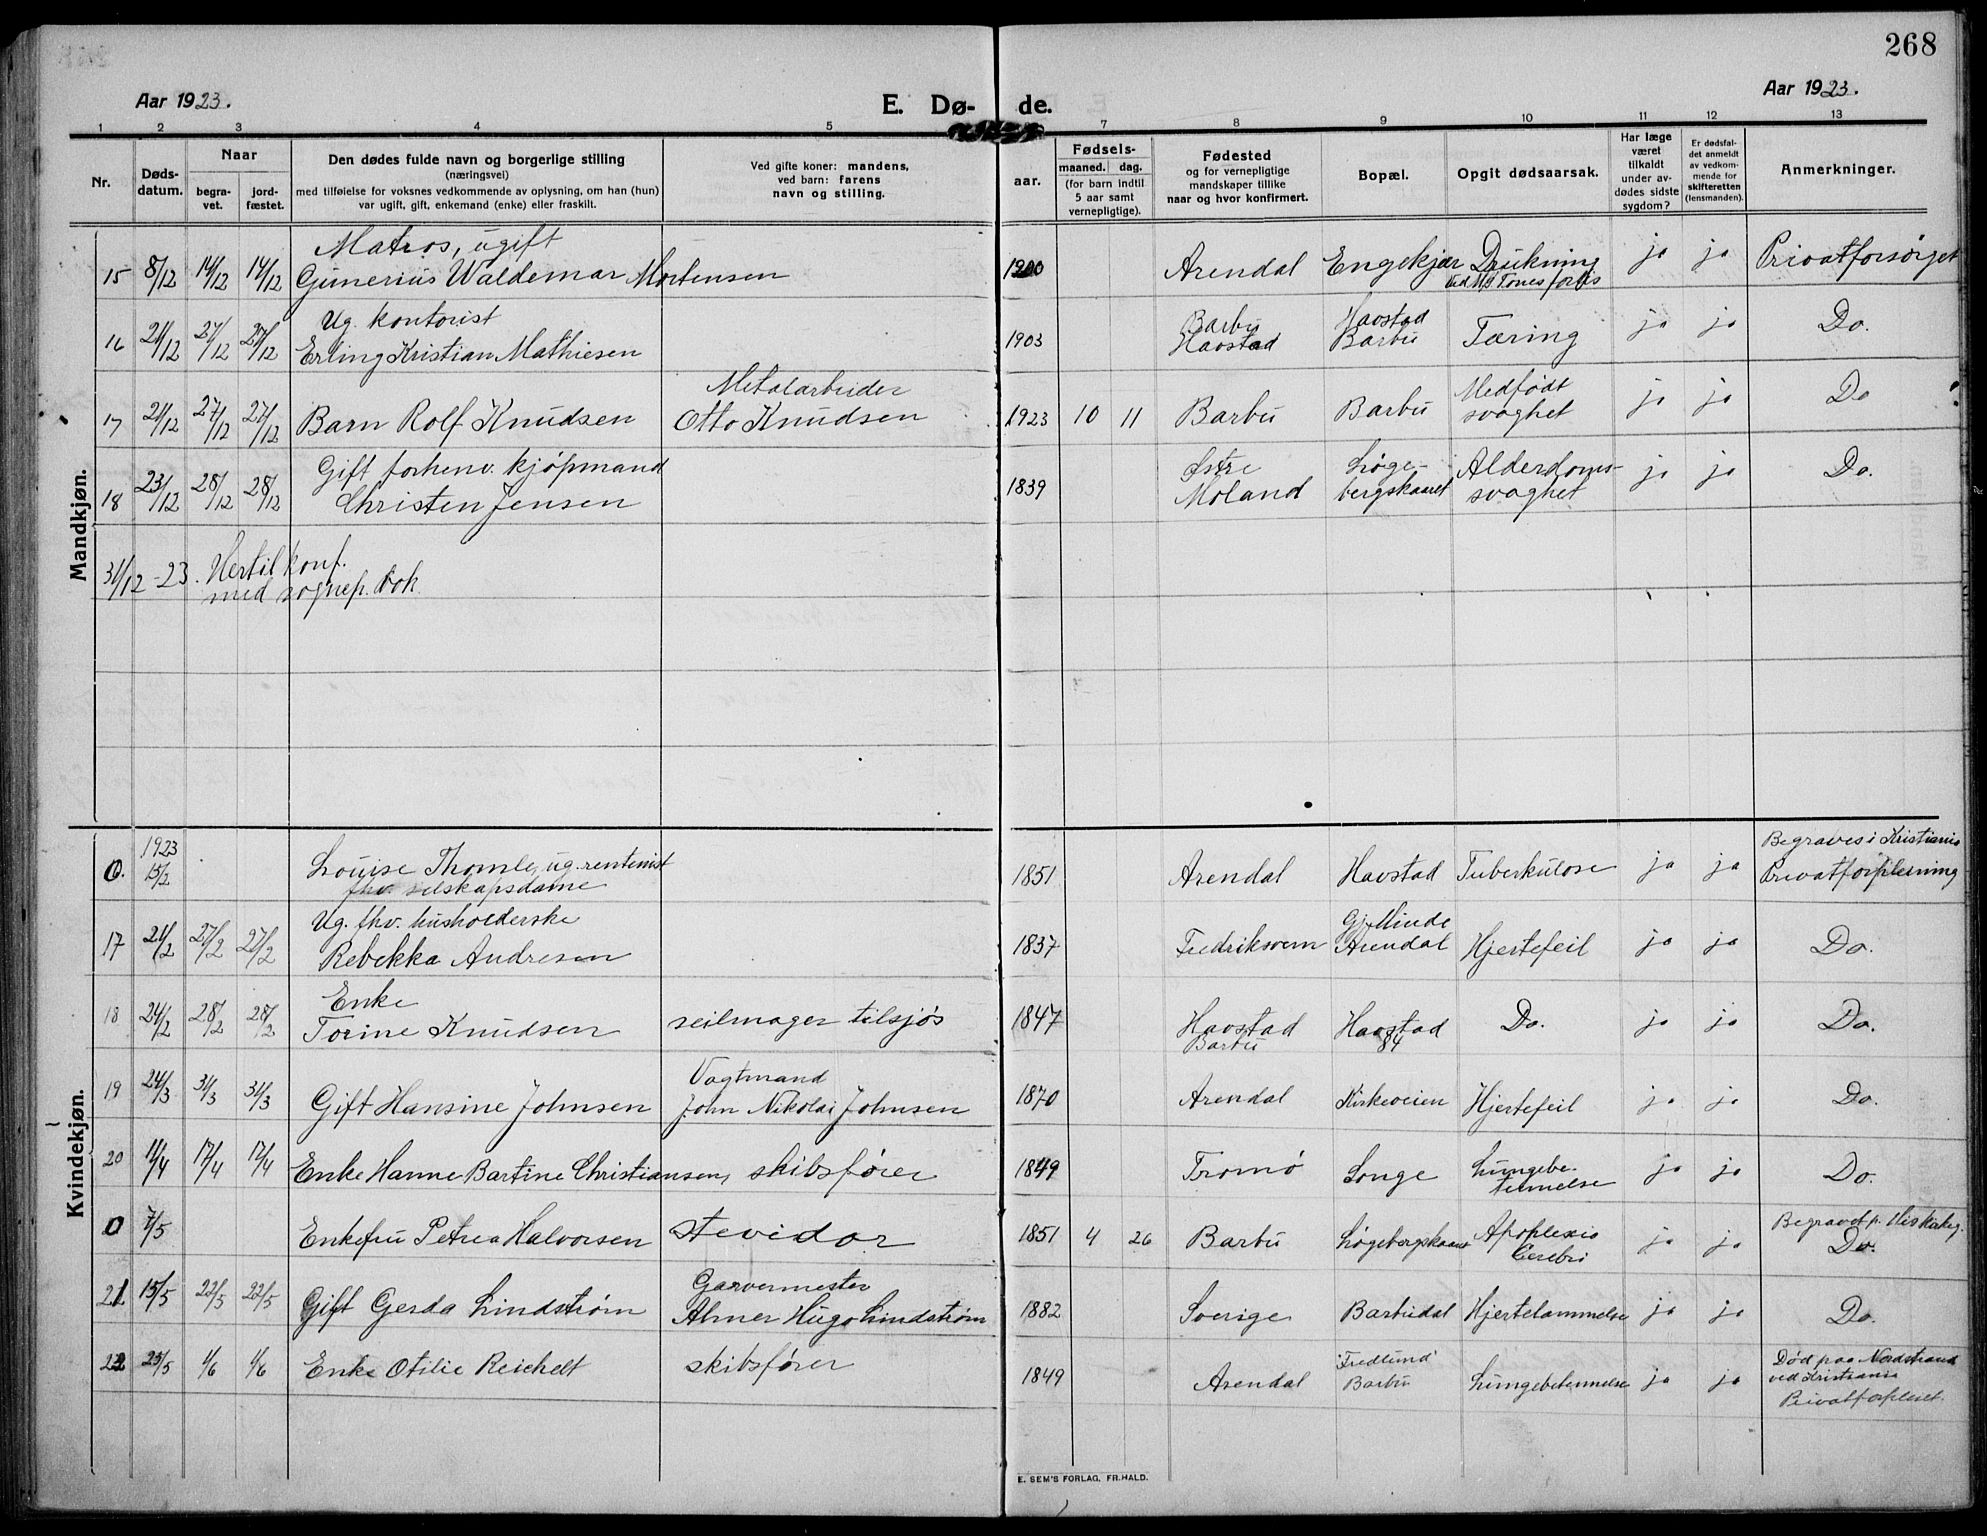 268
Aar 1923.
E. Dø- de.
Aar 1923.
1 2 3 4 5 7 8 9 10 11 12 13
Nr.
Døds-
datum.
Naar
begra-
vet.
jord-
fæstet.
Den dødes fulde navn og borgerlige stilling
(næringsvei)
med tilføielse for voksnes vedkommende av oplysning, om han (hun)
var ugift, gift, enkemand (enke) eller fraskilt.
Ved gifte koner: mandens,
ved barn: farens
navn og stilling.
aar.
Fødsels-
maaned. dag.
(for barn indtil
5 aar samt
vernepligtige).
Fødested
og for vernepligtige
mandskaper tillike
naar og hvor konfirmert.
Bopæl.
Opgit dødsaarsak.
Har læge
været
tilkaldt
under av-
dødes sidste
sygdom?
Er dødsfal-
det anmeldt
av vedkom-
mende for
skifteretten
(lensmanden).
Anmerkninger.
Mandkjøn.
Matros, ugift
15 8/12 14/12 14/12 Gunerius Waldemar Mortensen 1900 Arendal Engekjær Drukning ja ja Privatforsørget
Ug. kontorist
16 21/12 27/12 27/12 Erling Kristian Mathiesen 1903 Barbu Havstad Havstad Barbu Tæring ja ja Do.
Metalarbeider
17 21/12 27/12 27/12 Barn Rolf Knudsen Otto Knudsen 1923 10 11 Barbu Barbu Medfødt svaghet ja ja Do
Gift forhenv. kjøpmand
18 23/12 28/12 28/12 Christen Jensen 1839 Østre Moland Løge-bergskaaret Alderdoms-svaghet ja ja Do.
31/12 -23. Hertil konf.
med sognep. bok.
Kvindekjøn.
1923
0. 15/2 Louise Thomle, ug. rentenist 1851 Arendal Havstad Tuberkulose ja ja Begraves i Kristiania
fhv. selskapsdame Privatforpleining
Ug. fhv. husholderske
17 21/2 27/2 27/2 Rebekka Andresen 1837 Fredriksvern Arendal Hjertefeil ja ja Do.
Enke
18 24/2 28/2 28/2 Torine Knudsen seilmager tilsjøs 1847 Havstad Barbu Havstad 84 Do. ja ja Do.
Vagtmand
19 24/3 31/3 31/3 Gift Hansine Johnsen John Nikolai Johnsen 1870 Arendal Kirkeveien Hjertefeil ja ja Do.
20 11/4 17/4 17/4 Enke Hanne Bartine Christiansen, skibsfører 1849 Tromø Songe Lungebe-tennelse ja ja Do.
0 7/5 Enkefru Petrea Halvorsen stevidor 1851 4 26 Barbu Løgebergskaaret Apoplexio Cerebri ja ja Begravet p. Hiskirkeg.
Do.
Garvermester
21 15/5 22/5 22/5 Gift Gerda Lindstrøm Almer Hugo Lindstrøm 1882 Sverige Barbudal Hjertelammelse ja ja Do.
22 25/5 1/6 1/6 Enke Otilie Reichelt skibsfører 1849 Arendal "Fredlund" Barbu Lungebetennelse ja ja Død paa Nordstrand
ved Kristiania
Privatforpleiet.
E. SEM'S FORLAG, FR.HALD.